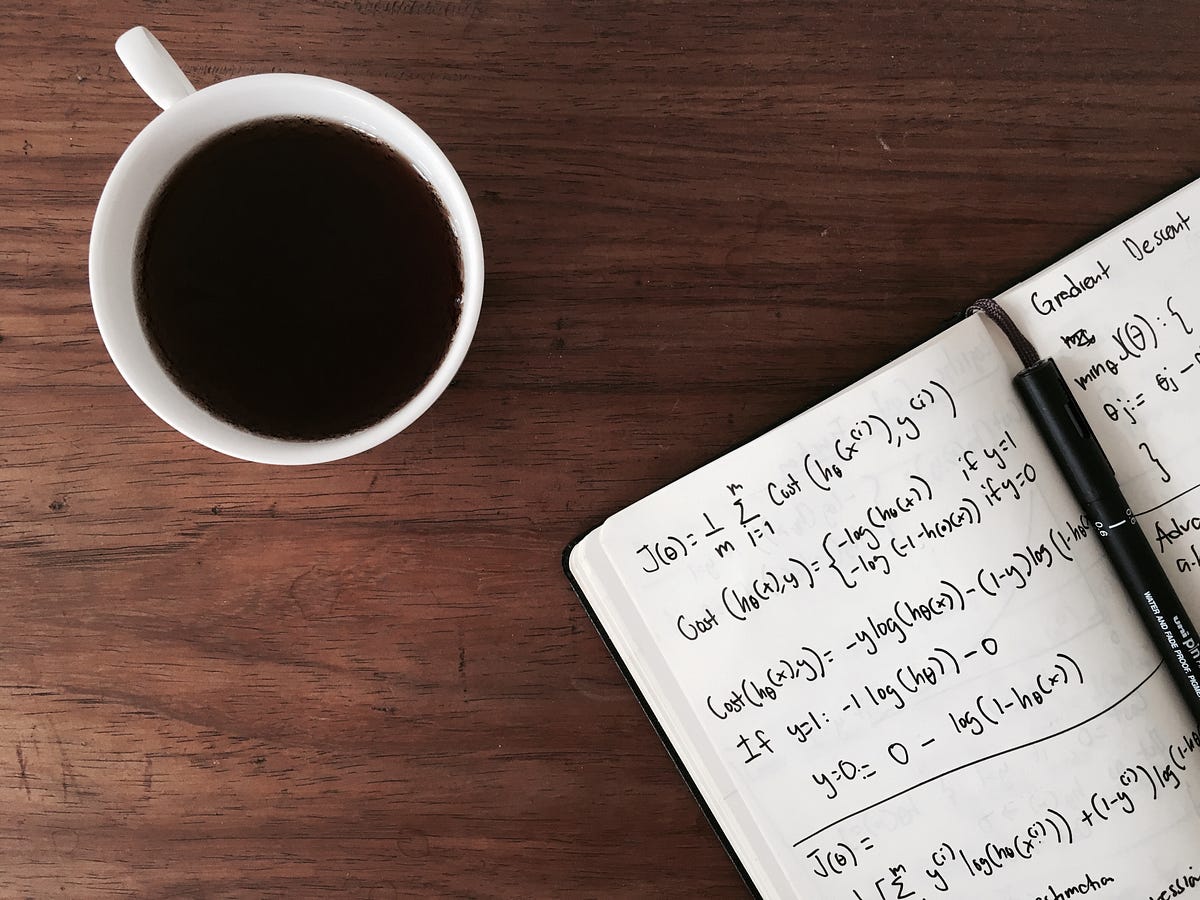 J(θ) = 1/m m∑i=1 Cost (hθ(x⁽ⁱ⁾), y⁽ⁱ⁾)
Cost (hθ(x),y) = { -log(hθ(x)) if y=1
-log (-1-h(θ)(x)) if y=0
Cost(hθ(x),y) = -y log(hθ(x)) - (1-y) log (1-hθ
If y=1: -1 log(hθ)) - 0
y=0:= 0 - log(1-hθ(x))
J(θ) =
m∑ y⁽ⁱ⁾ log(hθ(x⁽ⁱ⁾)) + (1-y⁽ⁱ⁾) log(1-h
Gradient Descent
minθ J(θ): {
θj := θj -
}
0.6
WATER AND FADE PROOF,
uni pin